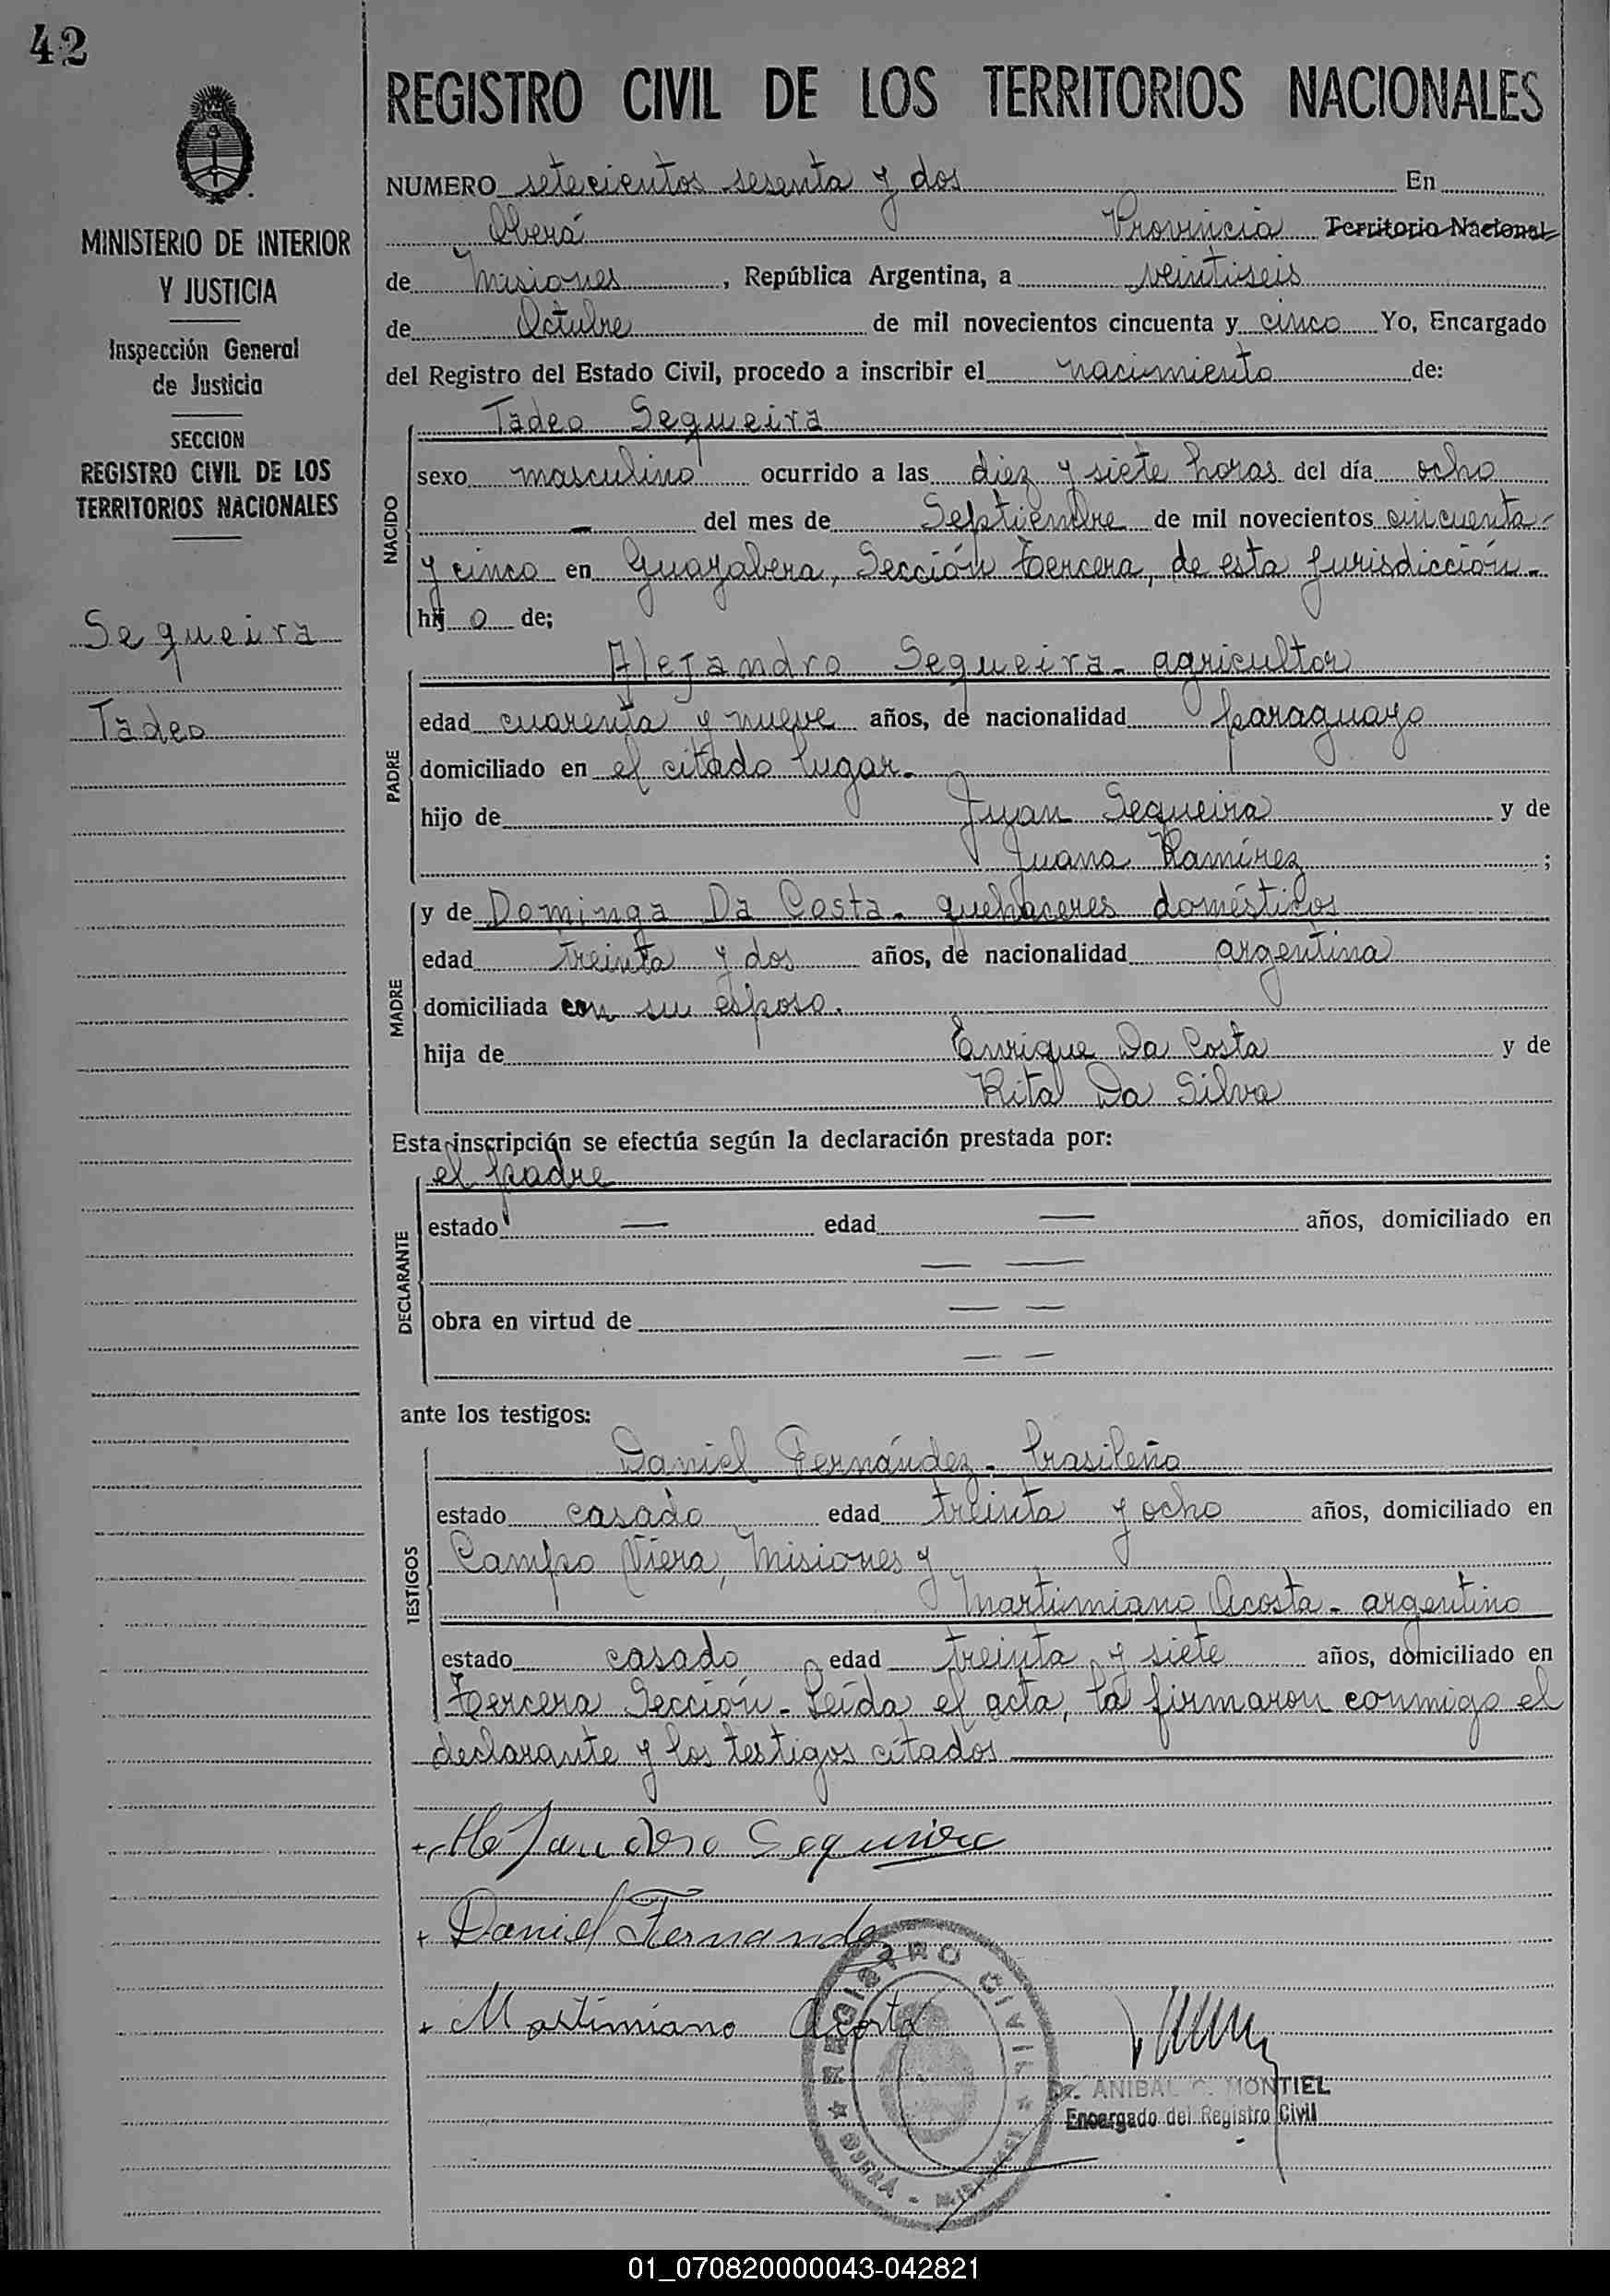 42
MINISTERIO DE INTERIOR
Y JUSTICIA
Inspección General
de Justicia
SECCION
REGISTRO CIVIL DE LOS
TERRITORIOS NACIONALES
Sequeira
Tadeo
REGISTRO CIVIL DE LOS TERRITORIOS NACIONALES
NUMERO setecientos sesenta y dos En
Oberá Provincia Territorio Nacional
de Misiones, República Argentina, a veintiseis
de Octubre de mil novecientos cincuenta y cinco Yo, Encargado
del Registro del Estado Civil, procedo a inscribir el nacimiento de:
NACIDO
Tadeo Sequeira
sexo masculino ocurrido a las diez y siete horas del día ocho
— del mes de Septiembre de mil novecientos cincuenta-
y cinco en Guayabera, Sección Tercera, de esta jurisdicción-
hij o de;
PADRE
Alejandro Sequeira - agricultor
edad cuarenta y nueve años, de nacionalidad paraguayo
domiciliado en el citado lugar.
hijo de Juan Sequeira y de
Juana Ramírez ;
MADRE
y de Dominga Da Costa - quehaceres domésticos
edad treinta y dos años, de nacionalidad argentina
domiciliada con su esposo.
hija de Enrique Da Costa y de
Rita Da Silva
Esta inscripción se efectúa según la declaración prestada por:
DECLARANTE
el padre
estado — edad — años, domiciliado en
— —
obra en virtud de — —
— —
ante los testigos:
TESTIGOS
Daniel Fernández - brasileño
estado casado edad treinta y ocho años, domiciliado en
Campo Viera, Misiones y
Martimiano Acosta - argentino
estado casado edad treinta y siete años, domiciliado en
Tercera Sección - Leída el acta, la firmaron conmigo el
declarante y los testigos citados
+ Alejandro Sequeira
+ Daniel Fernande
+ Martimiano Acosta
REGISTRO CIVIL
OBERA - MISIONES
Dr. ANIBAL C. MONTIEL
Encargado del Registro Civil
01_070820000043-042821